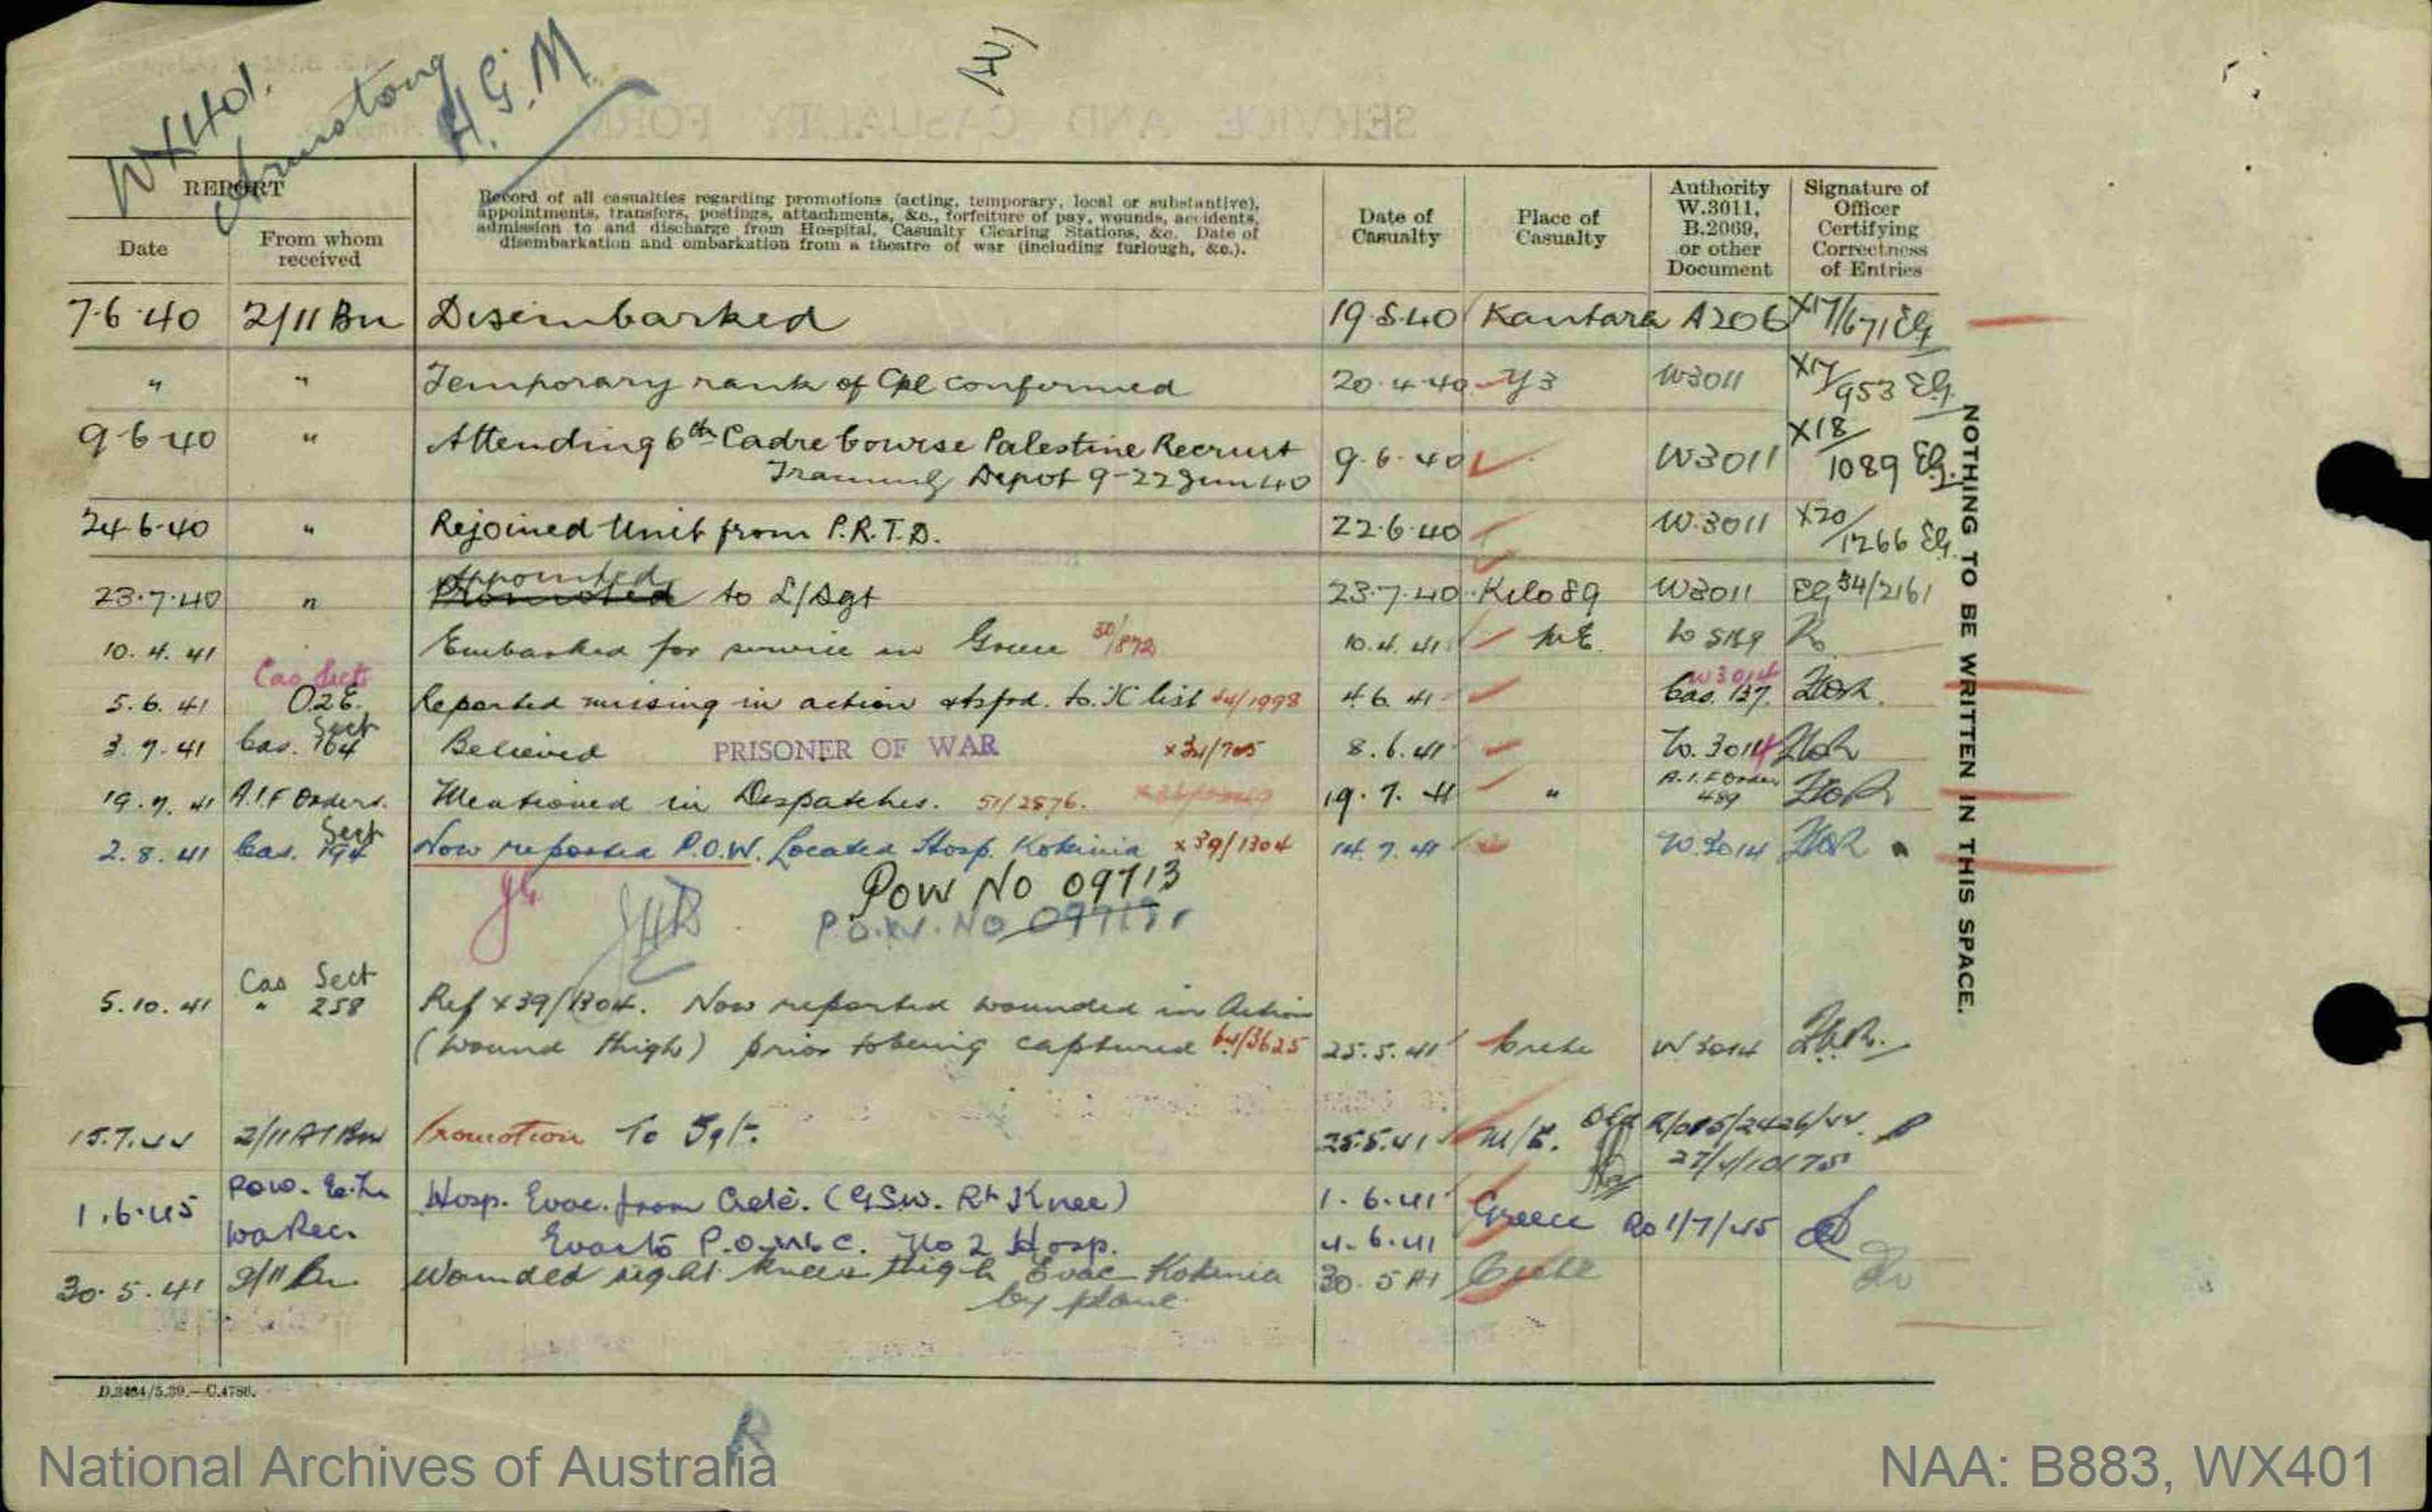 WX401.
Armstong
H.G.M.
SERVICE AND CASUALTY FORM
REPORT
Date
From whom received
Record of all casualties regarding promotions (acting, temporary, local or substantive),
appointments, transfers, postings, attachments, &c., forfeiture of pay, wounds, accidents,
admission to and discharge from Hospital, Casualty Clearing Stations, &c. Date of
disembarkation and embarkation from a theatre of war (including furlough, &c.).
Date of Casualty
Place of Casualty
Authority W.3011, B.2069, or other Document
Signature of Officer Certifying Correctness of Entries
7.6.40 2/11 Bn Disembarked 19.5.40 Kantara A206 X17/671
" " Temporary rank of Cpl confirmed 20.4.40 W3011 X17/953
9.6.40 " Attending 6th Cadre Course Palestine Recruit 9.6.40 W3011 X18/1089
Training Depot 9-22 Jun 40
24.6.40 " Rejoined Unit from P.R.T.D. 22.6.40 W.3011 X20/1266
Appointed
23.7.40 " Promoted to L/Sgt 23.7.40 Kilo 89 W3011 34/2161
10.4.41 Embarked for service in Greece 30/872 10.4.41 M.E.
Cas Sect W3014
5.6.41 O2E. Reported missing in action & tsfrd. to X list 44/1998 4.6.41 Cas. 137.
Sect
3.7.41 Cas. 164 Believed PRISONER OF WAR x34/705 8.6.41 W.3014
19.7.41 A.I.F Orders. Mentioned in Despatches. 51/2576. 19.7.41 " A.I.F Order 489
Sect
2.8.41 Cas. 194 Now reported P.O.W. Located Hosp. Kokinia x39/1304 14.7.41 W.3014
POW No 09713
P.O.W. No
Cas Sect
5.10.41 " 258 Ref x39/1304. Now reported wounded in Action
(wound thigh) prior to being captured 64/3625 25.5.41 Crete W3014
15.7.44 2/11 Bn Promotion To Sgt. 25.5.41 M/E. 2426/44
1.6.45 POW. Hosp. Evac. from Crete. (GSW. Rt Knee) 1.6.41 Greece Ro 1/7/45
Wa Rec. Evac to P.O.W. No 2 Hosp. 4.6.41
30.5.41 2/11 Bn Wounded right knee thigh Evac Kokinia 30.5.41 Crete
by plane
NOTHING TO BE WRITTEN IN THIS SPACE.
D.2484/5.39.—C.4786.
National Archives of Australia
NAA: B883, WX401